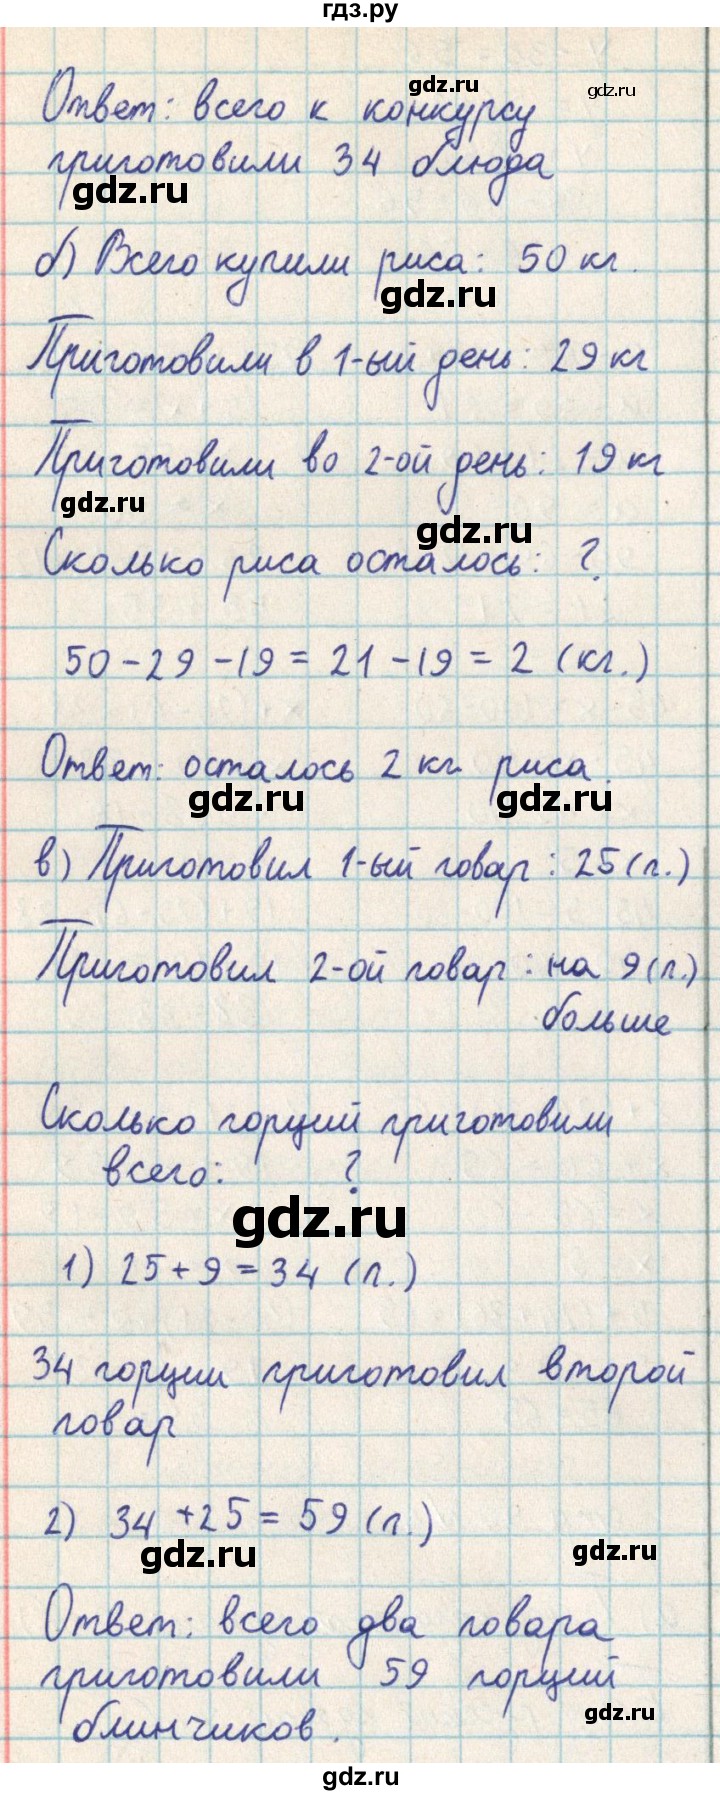 гдз.ру
Ответ: всего к конкурсу
gdz.ru
gdz.ru
приготовили 34 блюда
gdz.ru
б) Всего купили риса: 50 кг.
gdz.ru
Приготовили в 1-ый день: 29 кг
Приготовили во 2-ой день: 19 кг
gdz.ru
gdz.ru
Сколько риса осталось: ?
50 - 29 - 19 = 21 - 19 = 2 (кг.)
Ответ: осталось 2 кг риса.
gdz.ru
gdz.ru
в) Приготовил 1-ый повар: 25 (п.)
Приготовил 2-ой повар: на 9 (п.)
больше
Сколько порций приготовили
всего: ?
gdz.ru
1) 25 + 9 = 34 (п.)
34 порции приготовил второй
повар
2) 34 + 25 = 59 (п.)
gdz.ru
gdz.ru
Ответ: всего два повара
приготовили 59 порций
gdz.ru
блинчиков.
gdz.ru